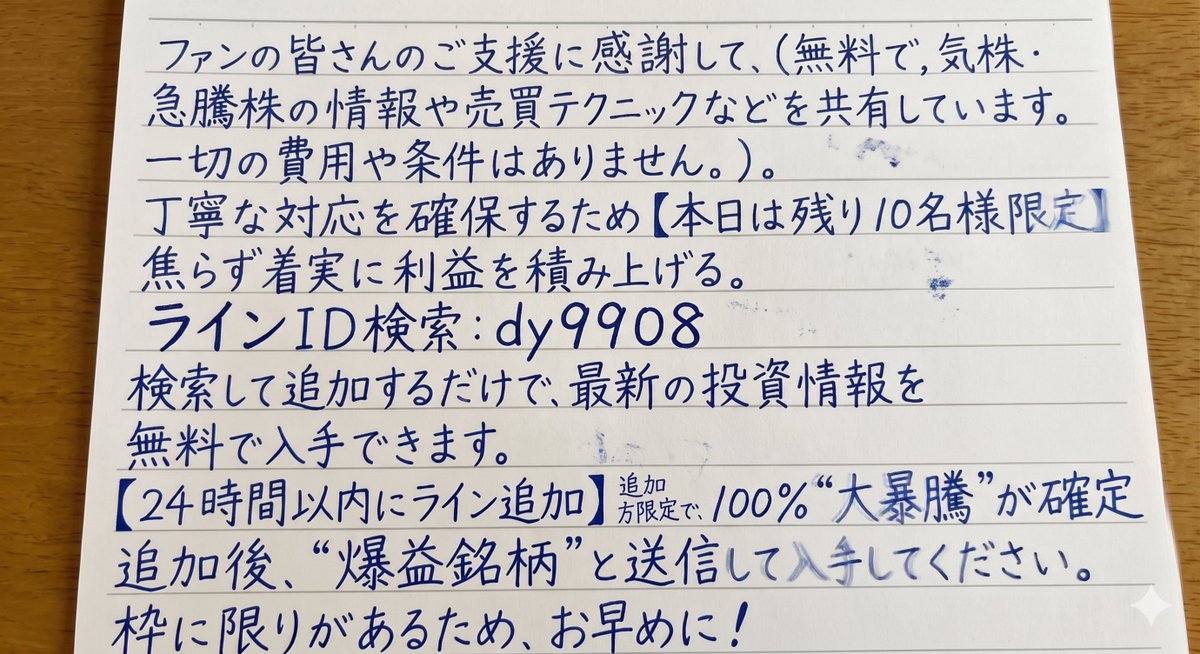 ファンの皆さんのご支援に感謝して、(無料で,気株・
急騰株の情報や売買テクニックなどを共有しています。
一切の費用や条件はありません。)。
丁寧な対応を確保するため【本日は残り10名様限定】
焦らず着実に利益を積み上げる。
ラインID検索:dy9908
検索して追加するだけで、最新の投資情報を
無料で入手できます。
【24時間以内にライン追加】追加方限定で、100%“大暴騰”が確定
追加後、“爆益銘柄”と送信して入手してください。
枠に限りがあるため、お早めに!